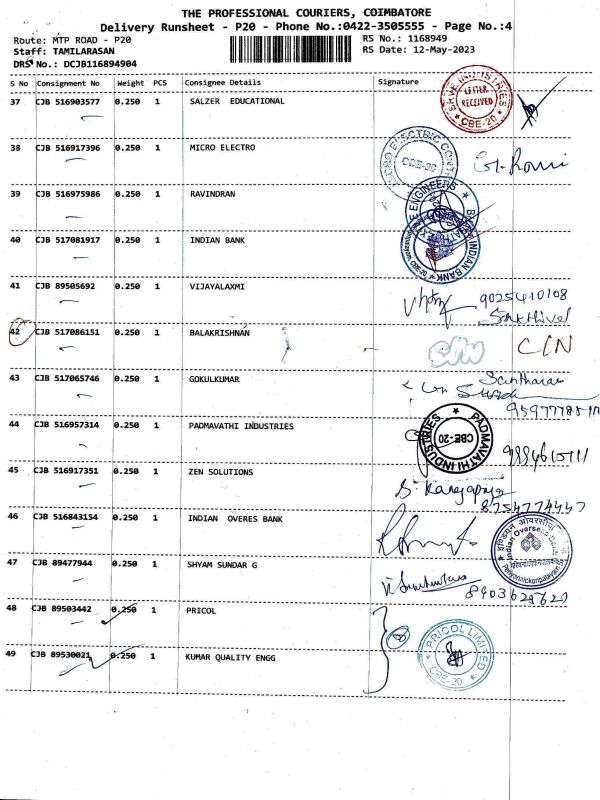 THE PROFESSIONAL COURIERS, COIMBATORE
Delivery Runsheet - P20 - Phone No.:0422-3505555 - Page No.:4
Route: MTP ROAD - P20 RS No.: 1168949
Staff: TAMILARASAN RS Date: 12-May-2023
DRS No.: DCJB116894904
S No Consignment No Weight PCS Consignee Details Signature
37 CJB 516903577 0.250 1 SALZER EDUCATIONAL
SHVE INDUSTRIES LETTER RECEIVED CBE-20
38 CJB 516917396 0.250 1 MICRO ELECTRO
MICRO ELECTRIC CONT CBE-20
39 CJB 516975986 0.250 1 RAVINDRAN
ENGINEERS
40 CJB 517081917 0.250 1 INDIAN BANK
INDIAN BANK
41 CJB 89505692 0.250 1 VIJAYALAXMI
9025410108
Sakthivel
42 CJB 517086151 0.250 1 BALAKRISHNAN
C/N
43 CJB 517065746 0.250 1 GOKULKUMAR
Santharam
44 CJB 516957314 0.250 1 PADMAVATHI INDUSTRIES
PADMAVATHI INDUSTRIES CBE-20
45 CJB 516917351 0.250 1 ZEN SOLUTIONS
8754774447
46 CJB 516843154 0.250 1 INDIAN OVERES BANK
इण्डियन ओवरसीज़ बैंक
Indian Overseas Bank
47 CJB 89477944 0.250 1 SHYAM SUNDAR G
8903628620
48 CJB 89503442 0.250 1 PRICOL
PRICOL LIMITED CBE-20
49 CJB 89530021 0.250 1 KUMAR QUALITY ENGG